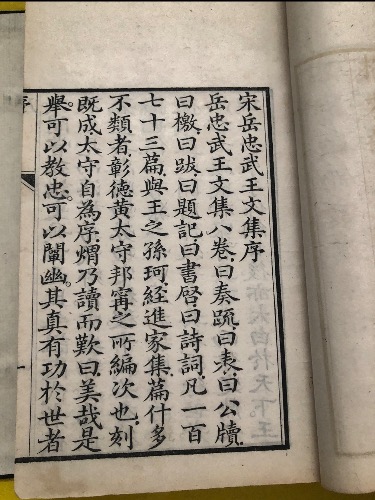 宋岳忠武王文集序
岳忠武王文集八卷曰奏疏曰表曰公牘
曰檄曰跋曰題記曰書啓曰詩詞凡一百
七十三篇與王之孫珂經進家集篇什多
不類者彰德黃太守邦甯之所編次也刻
既成太守自為序熠乃讀而歎曰美哉是
舉可以教忠可以闡幽其真有功於世者
序